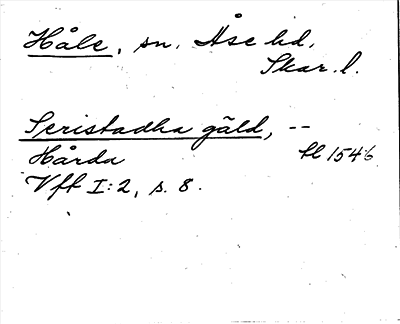 Håle, sn. Åse hd.
Skar. l.
Seristadha gäld, --
Hårda fl 1546
Vft I:2, s. 8.